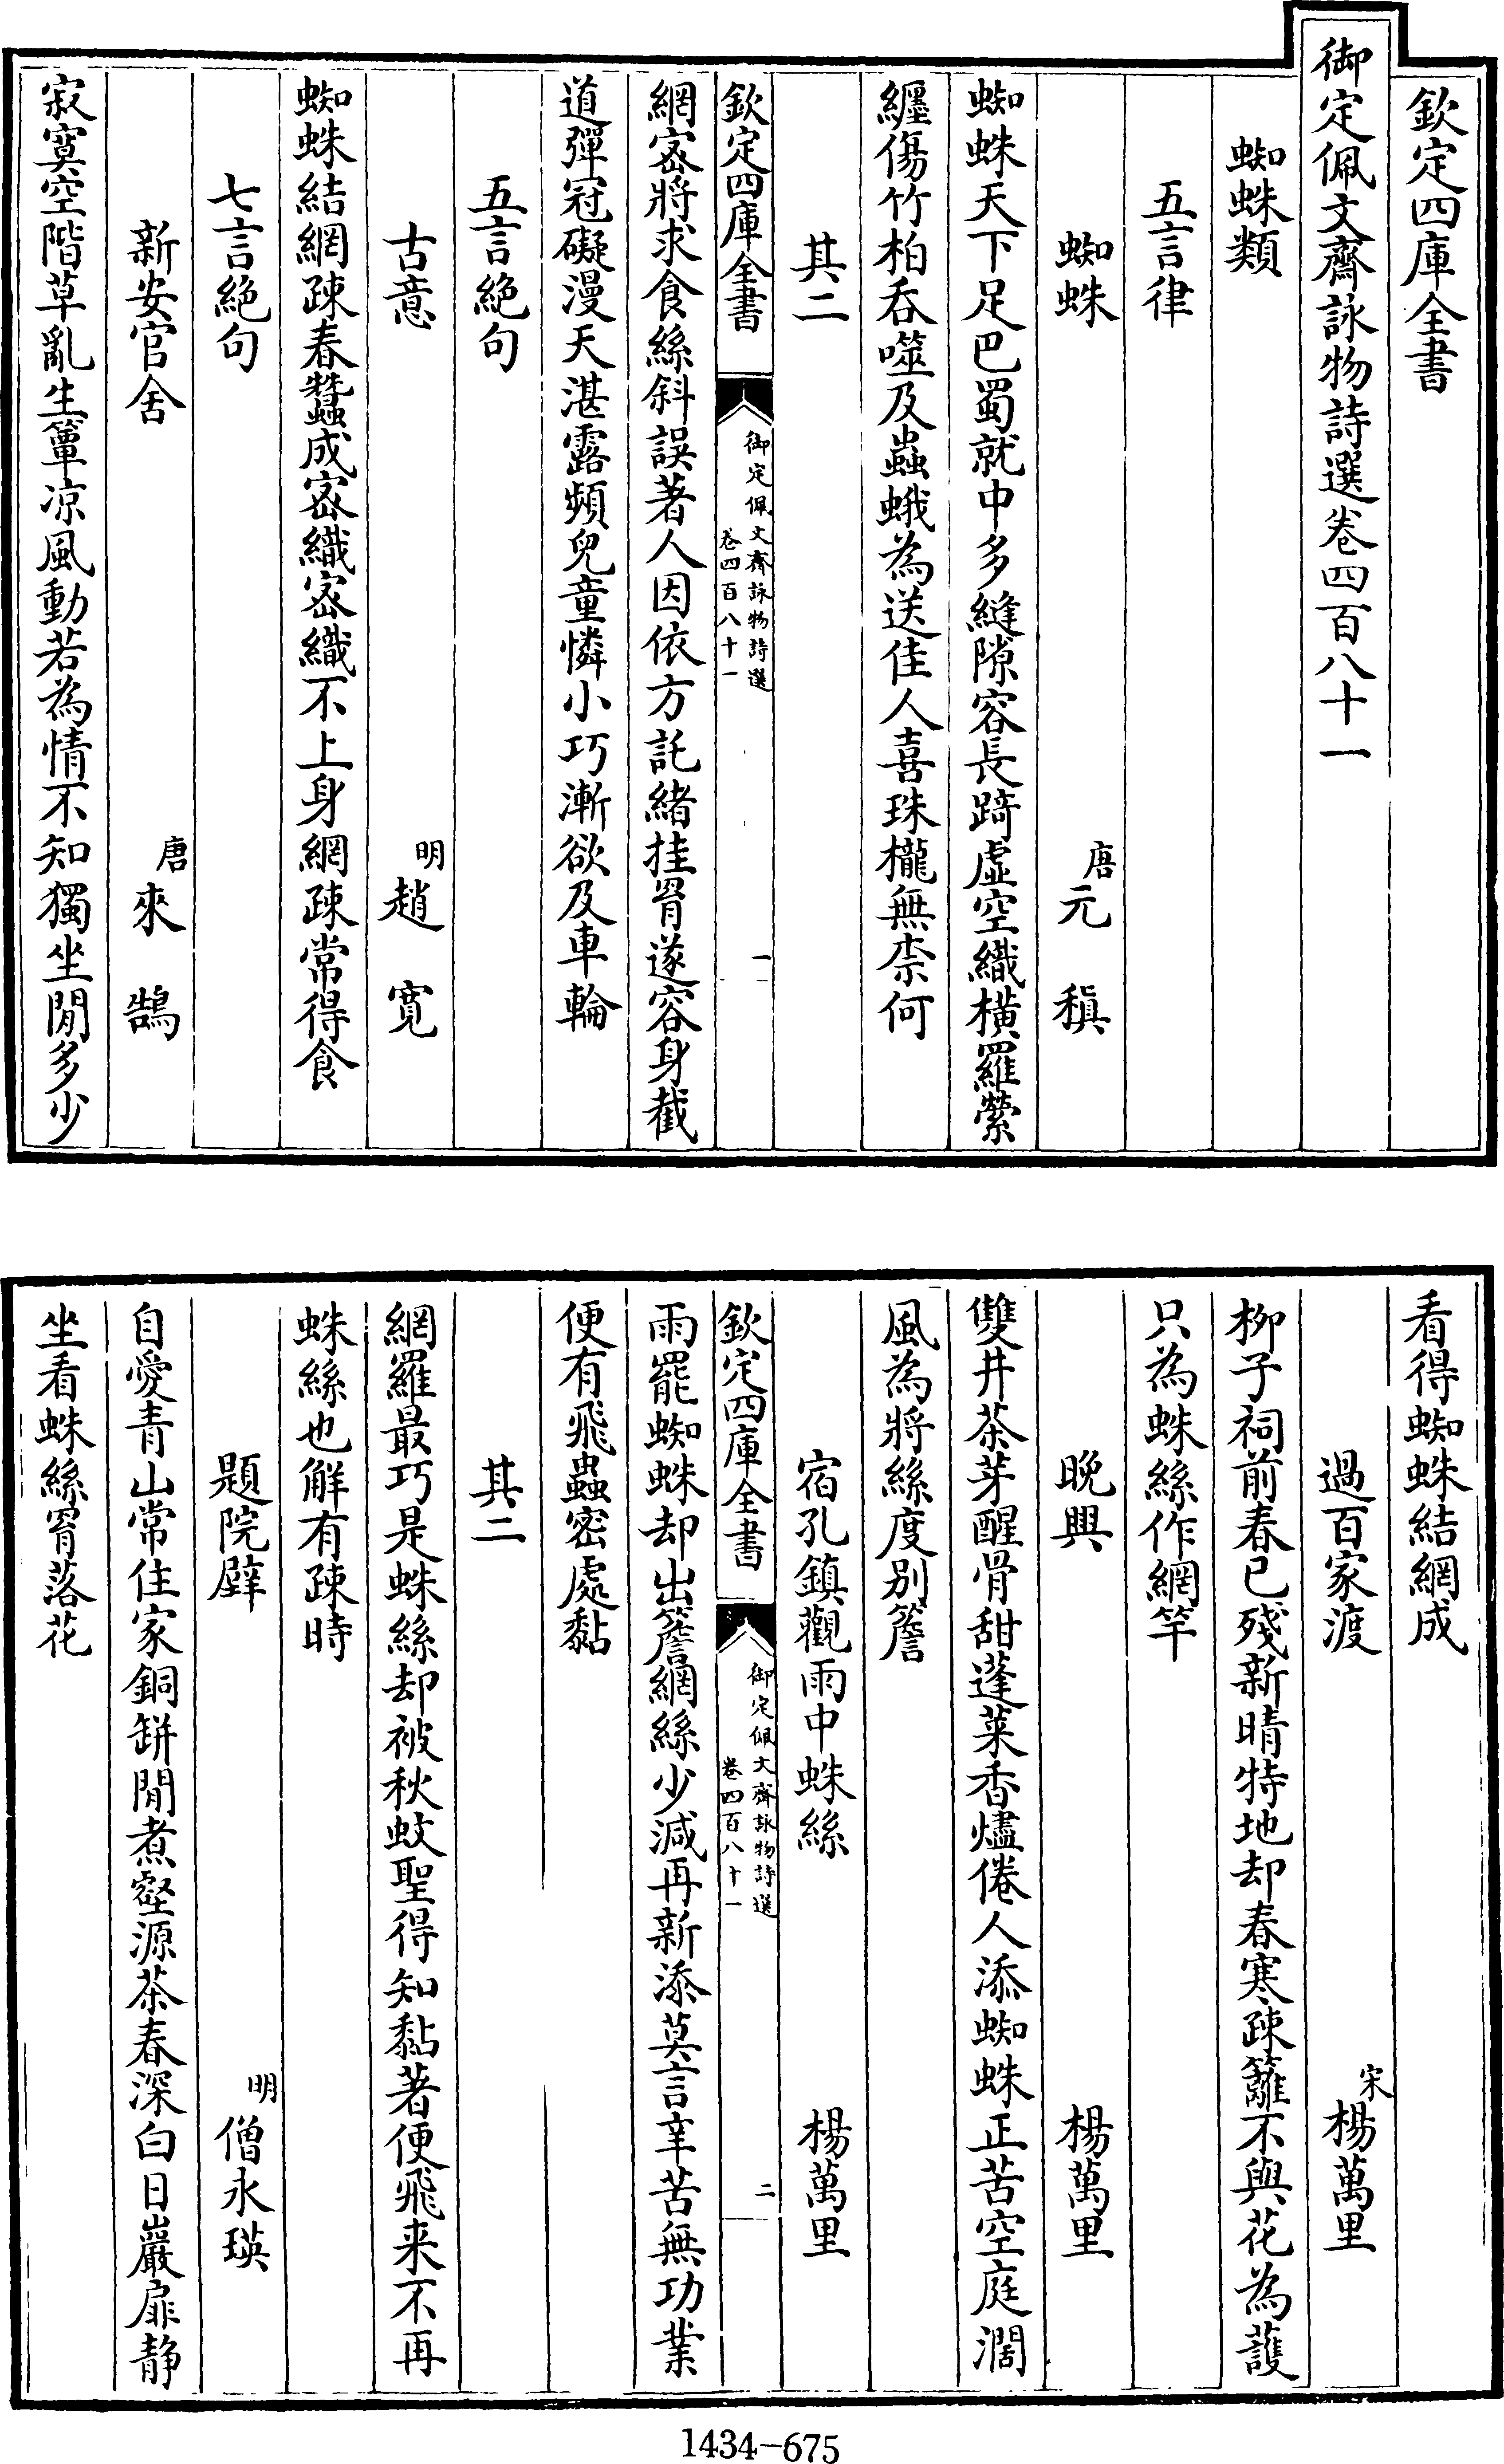 欽定四庫全書
御定佩文齋詠物詩選卷四百八十一
蜘蛛類
五言律
蜘蛛 唐元稹
蜘蛛天下足巴蜀就中多縫隙容長踦虛空織橫羅縈
纏傷竹柏呑噬及蟲蛾為送佳人喜珠櫳無柰何
其二
欽定四庫全書 御定佩文齋詠物詩選 卷四百八十一 一
網宻將求食絲斜誤著人因依方託緒挂罥遂容身截
道彈冠礙漫天湛露頻兒童憐小巧漸欲及車輪
五言絕句
古意 明趙寬
蜘蛛結網疎春蠶成宻織宻織不上身網疎常得食
七言絕句
新安官舍 唐來鵠
寂寞空階草亂生簟凉風動若為情不知獨坐閒多少
看得蜘蛛結網成
過百家渡 宋楊萬里
柳子祠前春已殘新晴特地却春寒疎籬不與花為護
只為蛛絲作網竿
晚興 楊萬里
雙井茶芽醒骨甜蓬萊香燼倦人添蜘蛛正苦空庭濶
風為將絲度別簷
宿孔鎮觀雨中蛛絲 楊萬里
欽定四庫全書 御定佩文齋詠物詩選 卷四百八十一 二
雨罷蜘蛛却出簷網絲少減再新添莫言辛苦無功業
便有飛蟲密處黏
其二
網羅最巧是蛛絲却被秋蚊聖得知黏著便飛来不再
蛛絲也解有疎時
題院壁 明僧永瑛
自愛青山常住家銅缾閒煮壑源茶春深白日巖扉静
坐看蛛絲罥落花
1434—675